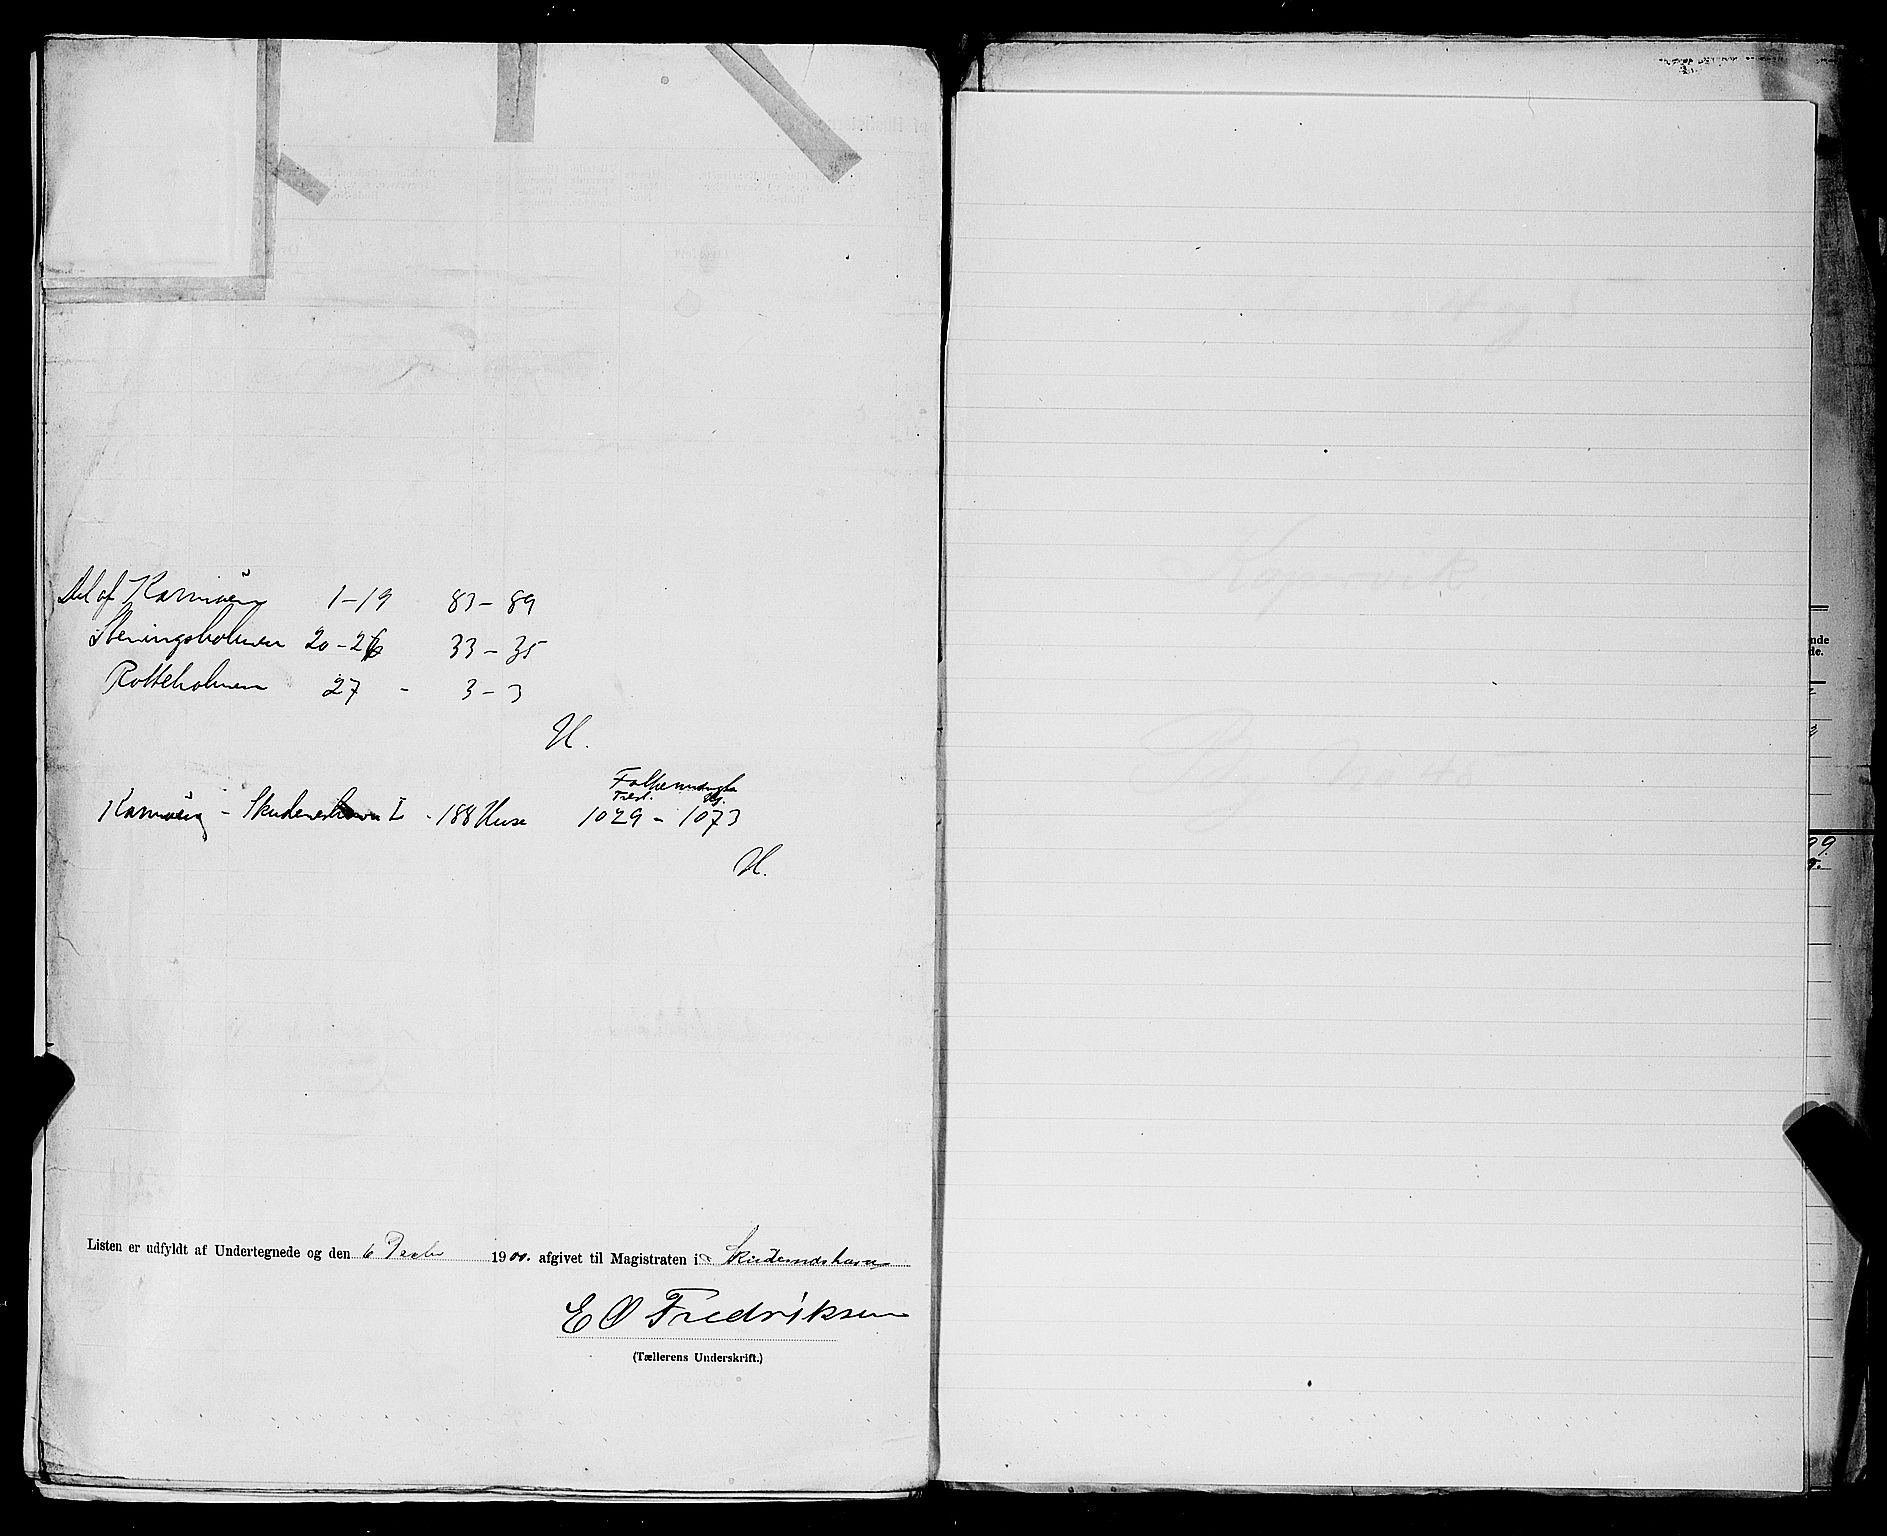 Del af Karmöen 1-19 83-89
Steningsholmen 20-26 33-35
Rotteholmen 27 - 3-3
H.
Folkemængde
Tilst. Hj.
Karmöen - Skudeneshavn I - 188 Huse 1029 - 1073
H.
Listen er udfyldt af Undertegnede og den 6 Decbr 1900. afgivet til Magistraten i Skudeneshavn
E Ø Fredriksen
(Tællerens Underskrift.)
Kopervik